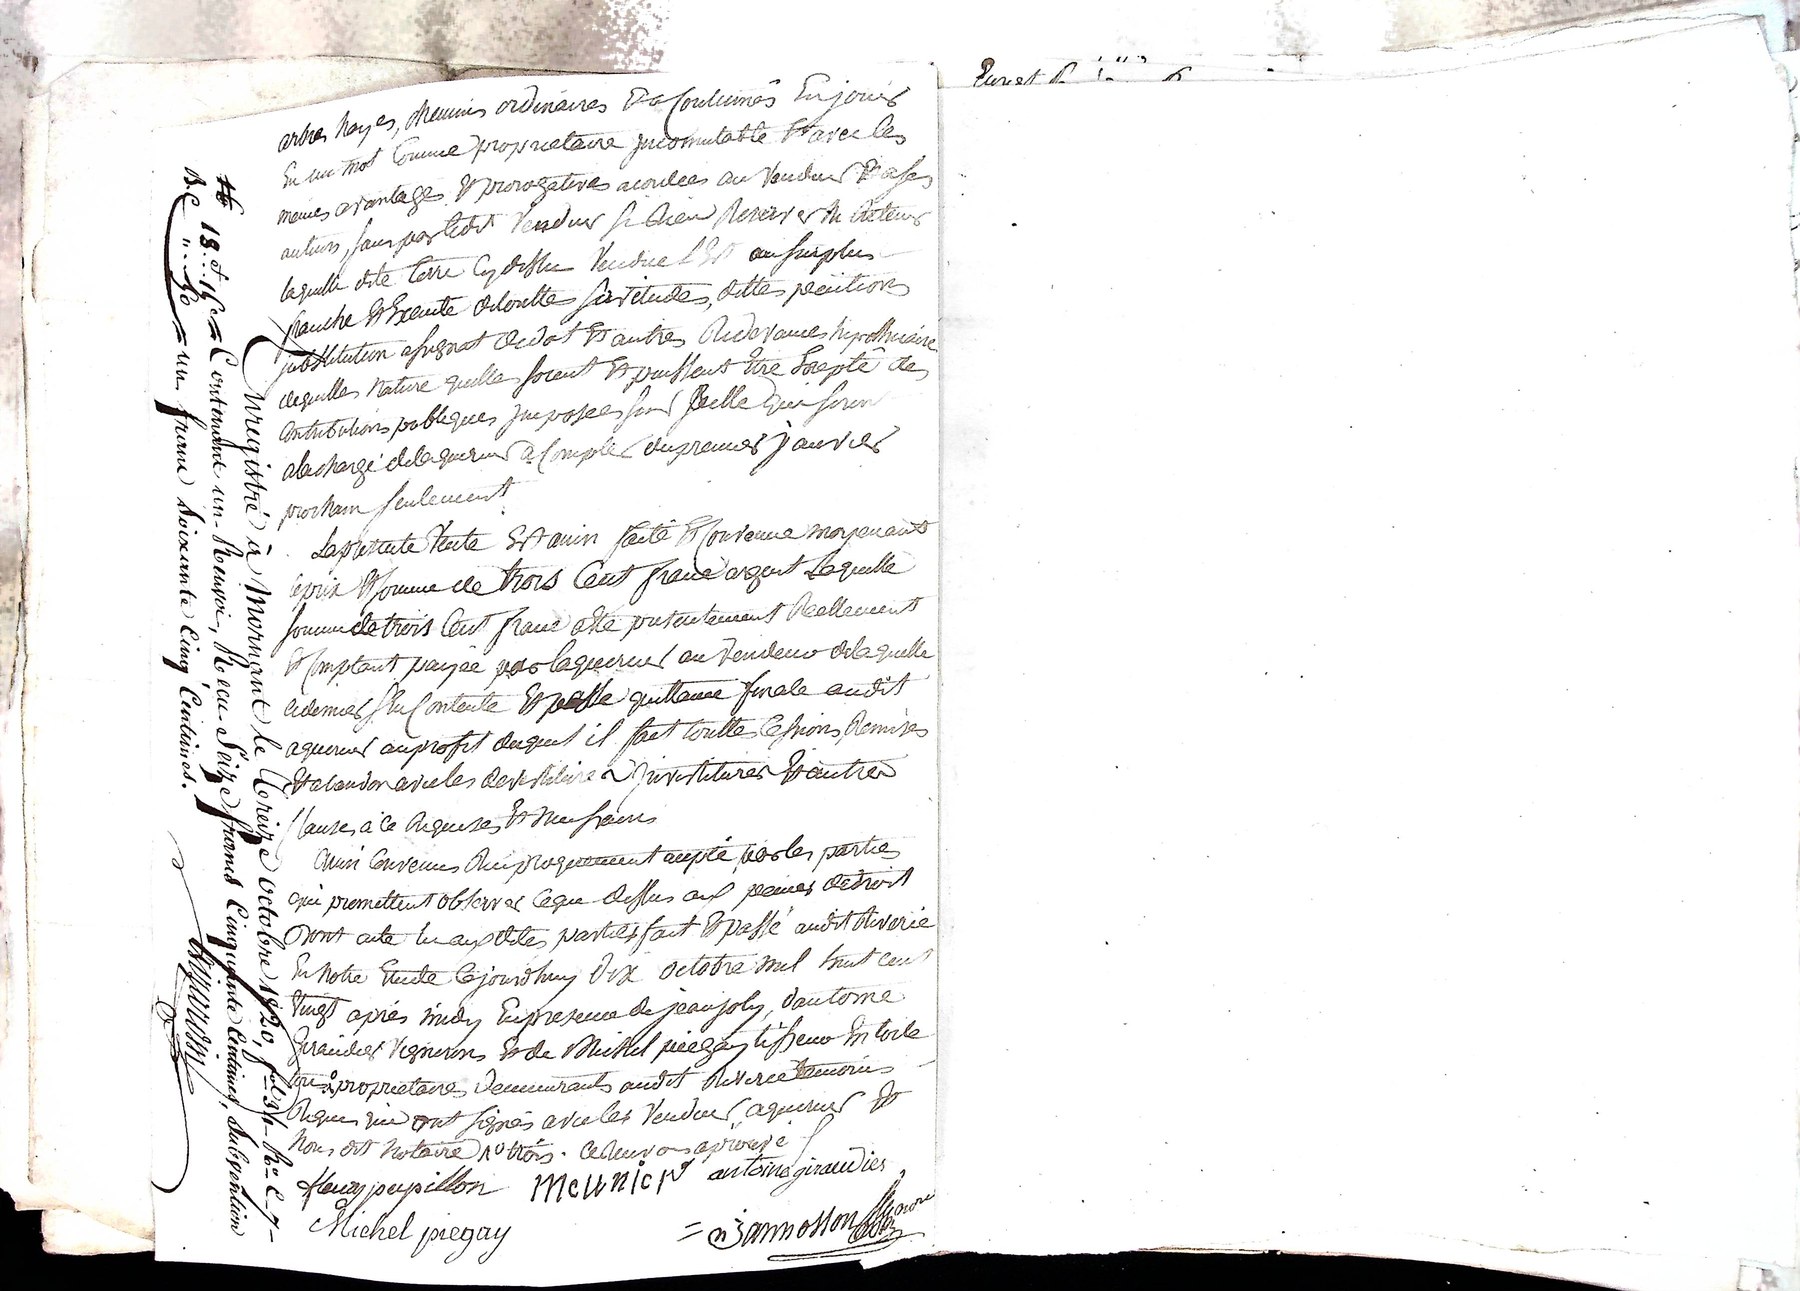 arbres hayes, chemins ordinaires & acoutumés En jouir
En un mot Comme proprietaire jncomutable & avec les
memes avantages & prorogatives acordées au Vendeur & a ses
auteurs, sans par ledit Vendeur se Rien Reserver Ni Retenir
laquelle dite terre Cy dessus Vendue Est au surplus
franche & Exempte de touttes servitudes, dettes pentions
substitution assignat de dot & autres Redevances hipothecaire
dequelles nature quelle soient & puissent Etre Excepté des
Contributions publiques jmposées sur jcelle qui seront
alacharge delaquereur a Compter du premier janvier
prochain seulement
La presente Vente Est ainsi faite & Convenue moyenant
le prix & somme de trois Cent franc argent Laquelle
somme de trois Cent franc a été presentement Reellement
& Comptant payée par laquereur au Vendeur delaquelle
ce dernier se Contente & passe quittance finale audit
aquereur au profit duquel il fait touttes Cessions, Remises
& abandon avec les devestiture jnvestitures & autres
Clauses à ce Requises & necessaires
Ainsi Convenus Reciproquement accepté par les parties
qui promettent observer ce que dessus aux peines de droit
Dont acte lu auxdites parties fait & passé audit Riverie
En notre Etude Cejourdhuy Dix octobre mil huit cent
Vingt après midy En presence de jean joly, d'antoine
Giraudier Vignerons & de Michel piegay tisseur En toile
tous proprietaires demeurants audit Riverie temoins
Requis qui ont signés avec les Vendeur aquereur &
Nous dit notaire
fleury papillon Meunier antoine giraudier
Michel piegay = Jannosson
Enregistré à Mornant le treize octobre 1820, fol. 34 Ro C. 7
Contenant un Renvoi, Recu Seize francs Cinquante Centimes, Subvention
un franc Soixante Cinq Centimes.